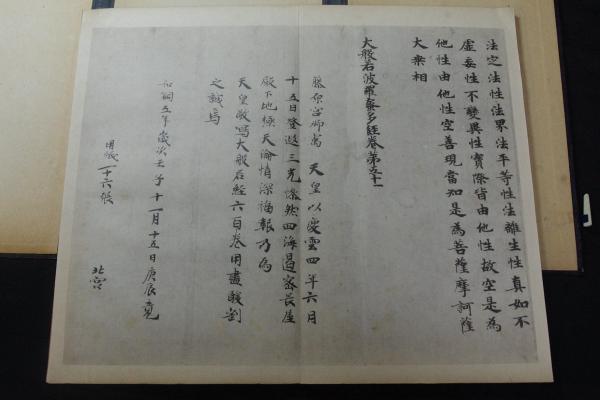 法定法性法界法平等性法離生性真如不
虛妄性不變異性實際皆由他性故空是為
他性由他性空善現當知是為菩薩摩訶薩
大乘相
大般若波羅蜜多經卷第五十一
藤原宮御寓 天皇以慶雲四年六月
十五日登遐三光慘然四海遏密長屋
殿下地極天倫情深福報乃為
天皇敬寫大般若經六百卷用盡酸割
之誠焉
和銅五年歲次壬子十一月十五日庚辰竟
用紙一十六張 北宮